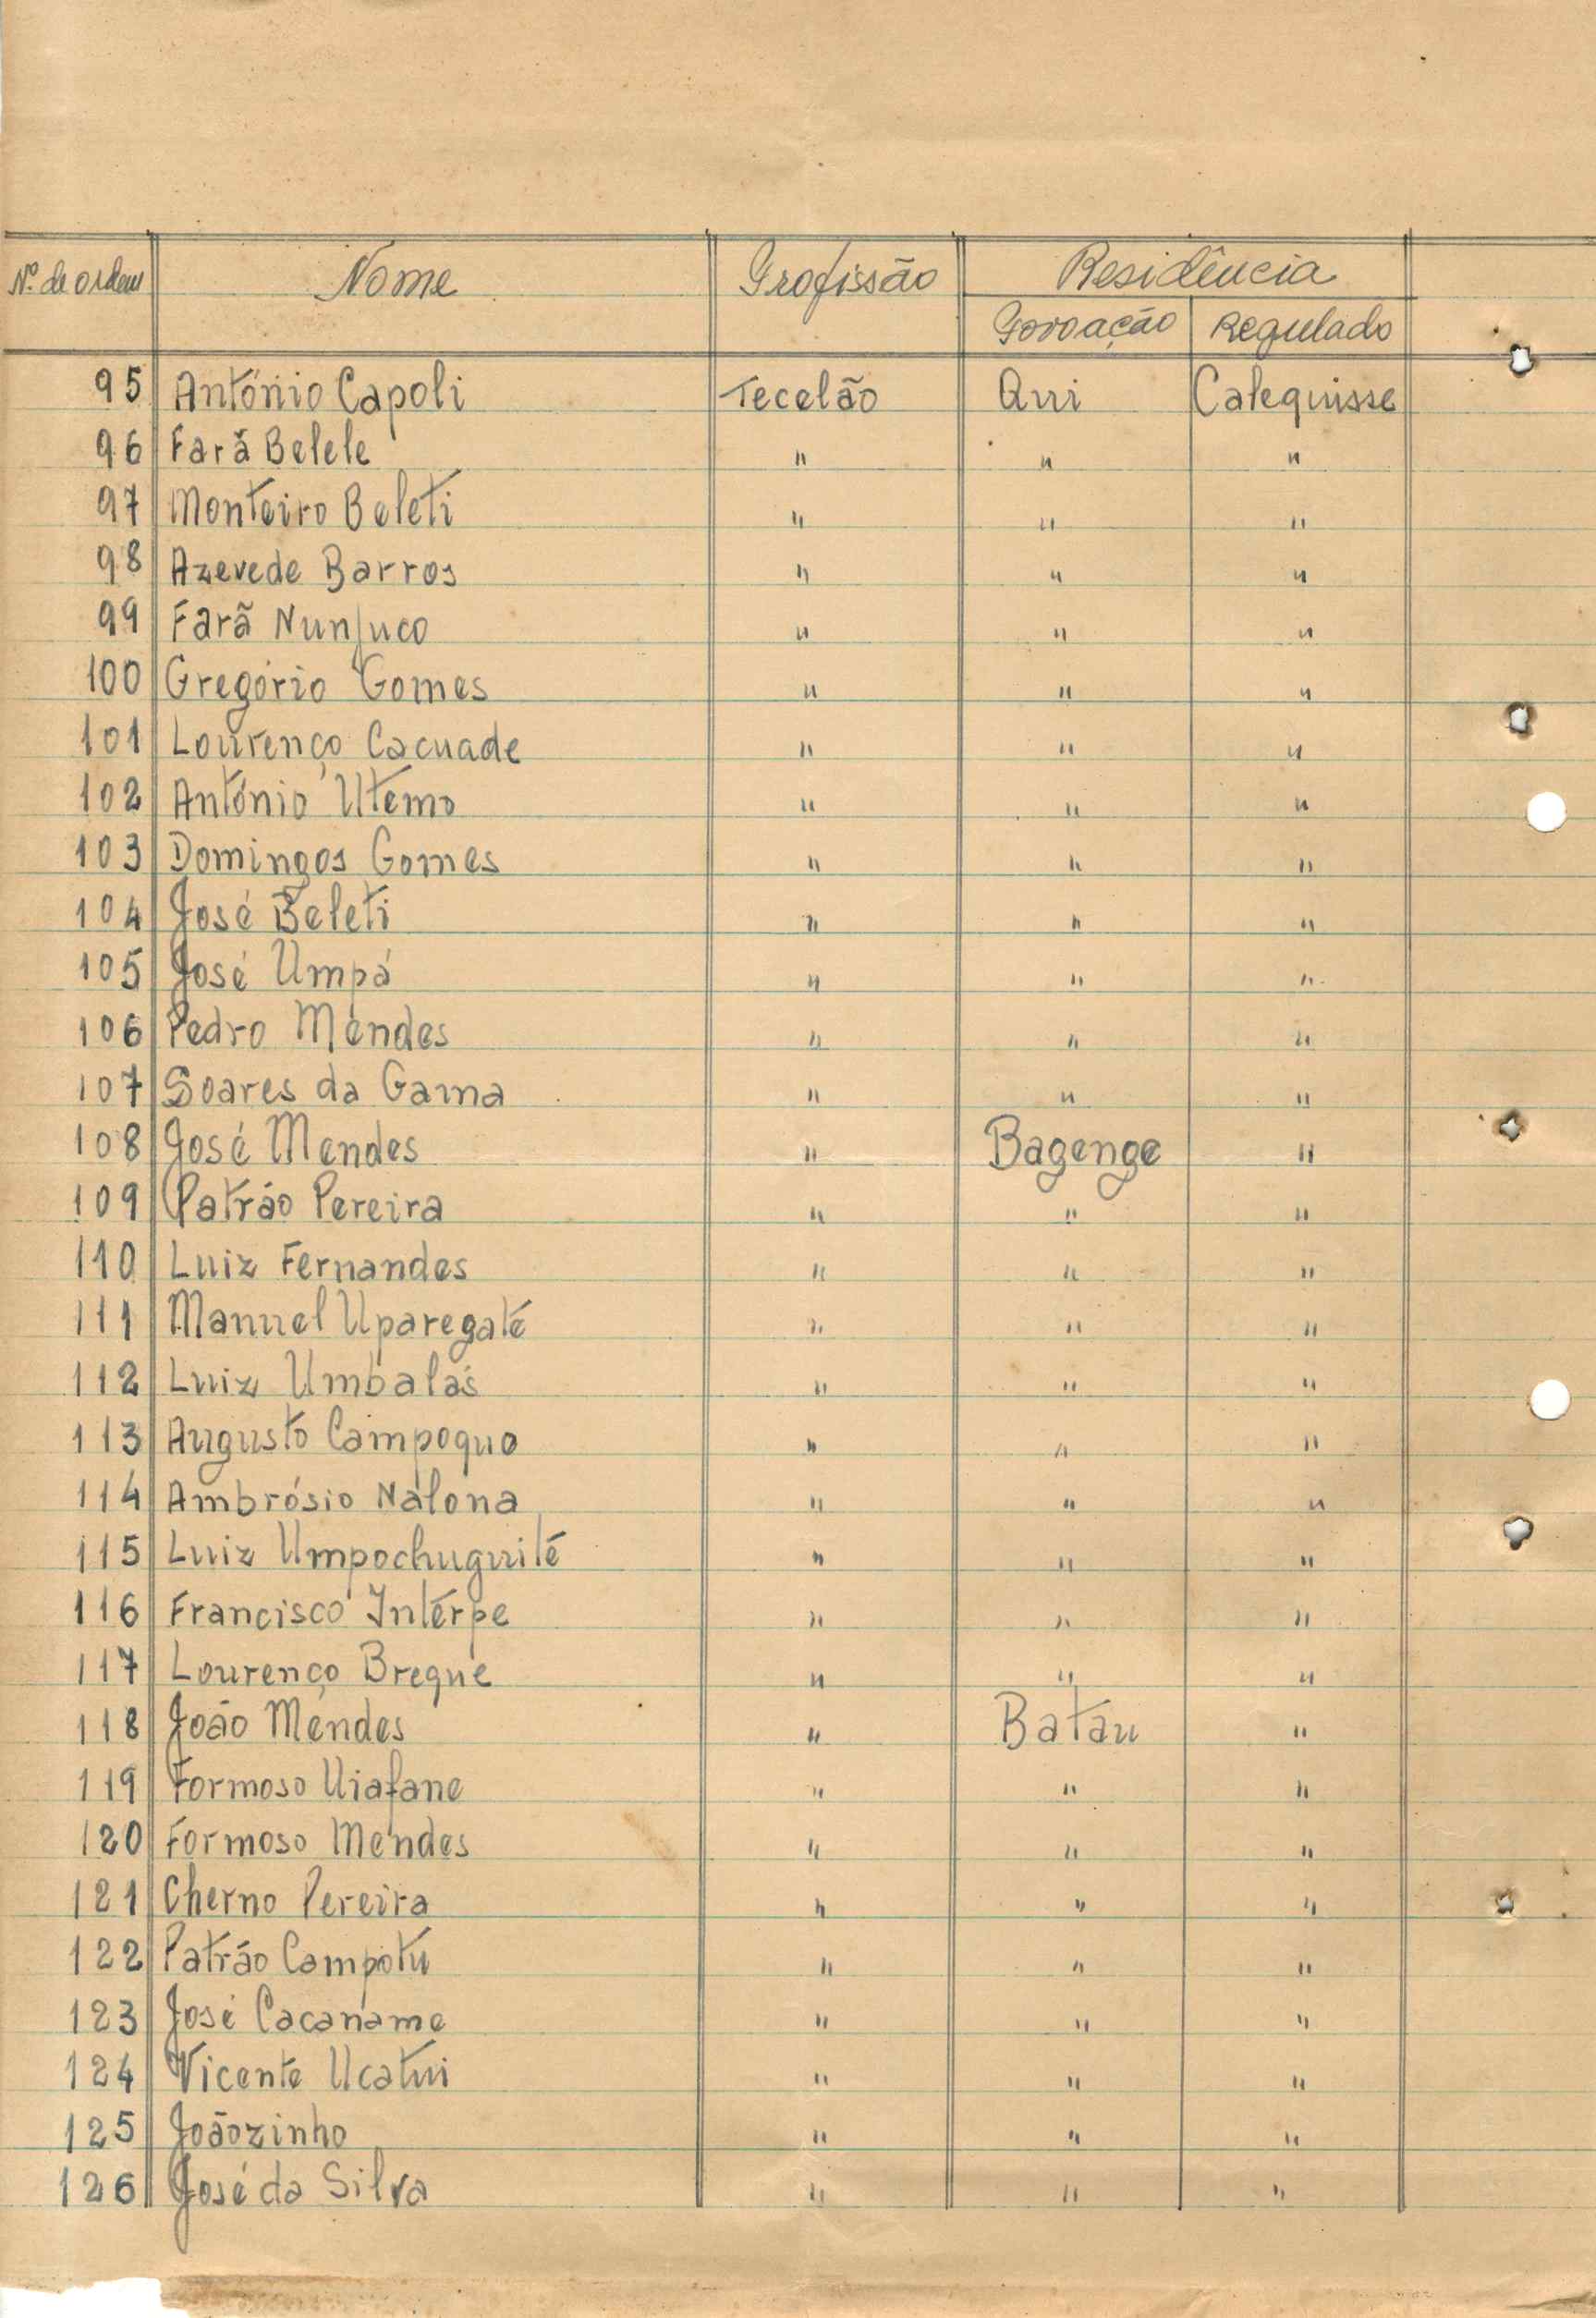 Nº de ordem Nome Profissão Residência
Povoação Regulado
95 António Capoli Tecelão Qui Calequisse
96 Farã Belele " " "
97 Monteiro Beleti " " "
98 Azevede Barros " " "
99 Farã Nunjuco " " "
100 Gregório Gomes " " "
101 Lourenço Cacuade " " "
102 António Utemo " " "
103 Domingos Gomes " " "
104 José Beleti " " "
105 José Umpá " " "
106 Pedro Mendes " " "
107 Soares da Gama " " "
108 José Mendes " Bagenge "
109 Patrão Pereira " " "
110 Luiz Fernandes " " "
111 Manuel Uparegaté " " "
112 Luiz Umbalás " " "
113 Augusto Campoquo " " "
114 Ambrósio Nalona " " "
115 Luiz Umpochuguité " " "
116 Francisco Intérpe " " "
117 Lourenço Breque " " "
118 João Mendes " Batau "
119 Formoso Uiafane " " "
120 Formoso Mendes " " "
121 Cherno Pereira " " "
122 Patrão Campotu " " "
123 José Cacaname " " "
124 Vicente Ucatui " " "
125 Joãozinho " " "
126 José da Silva " " "